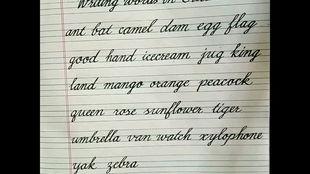 Writing words in
ant bat camel dam egg flag
good hand icecream jug king
land mango orange peacock
queen rose sunflower tiger
umbrella van watch xylophone
yak zebra